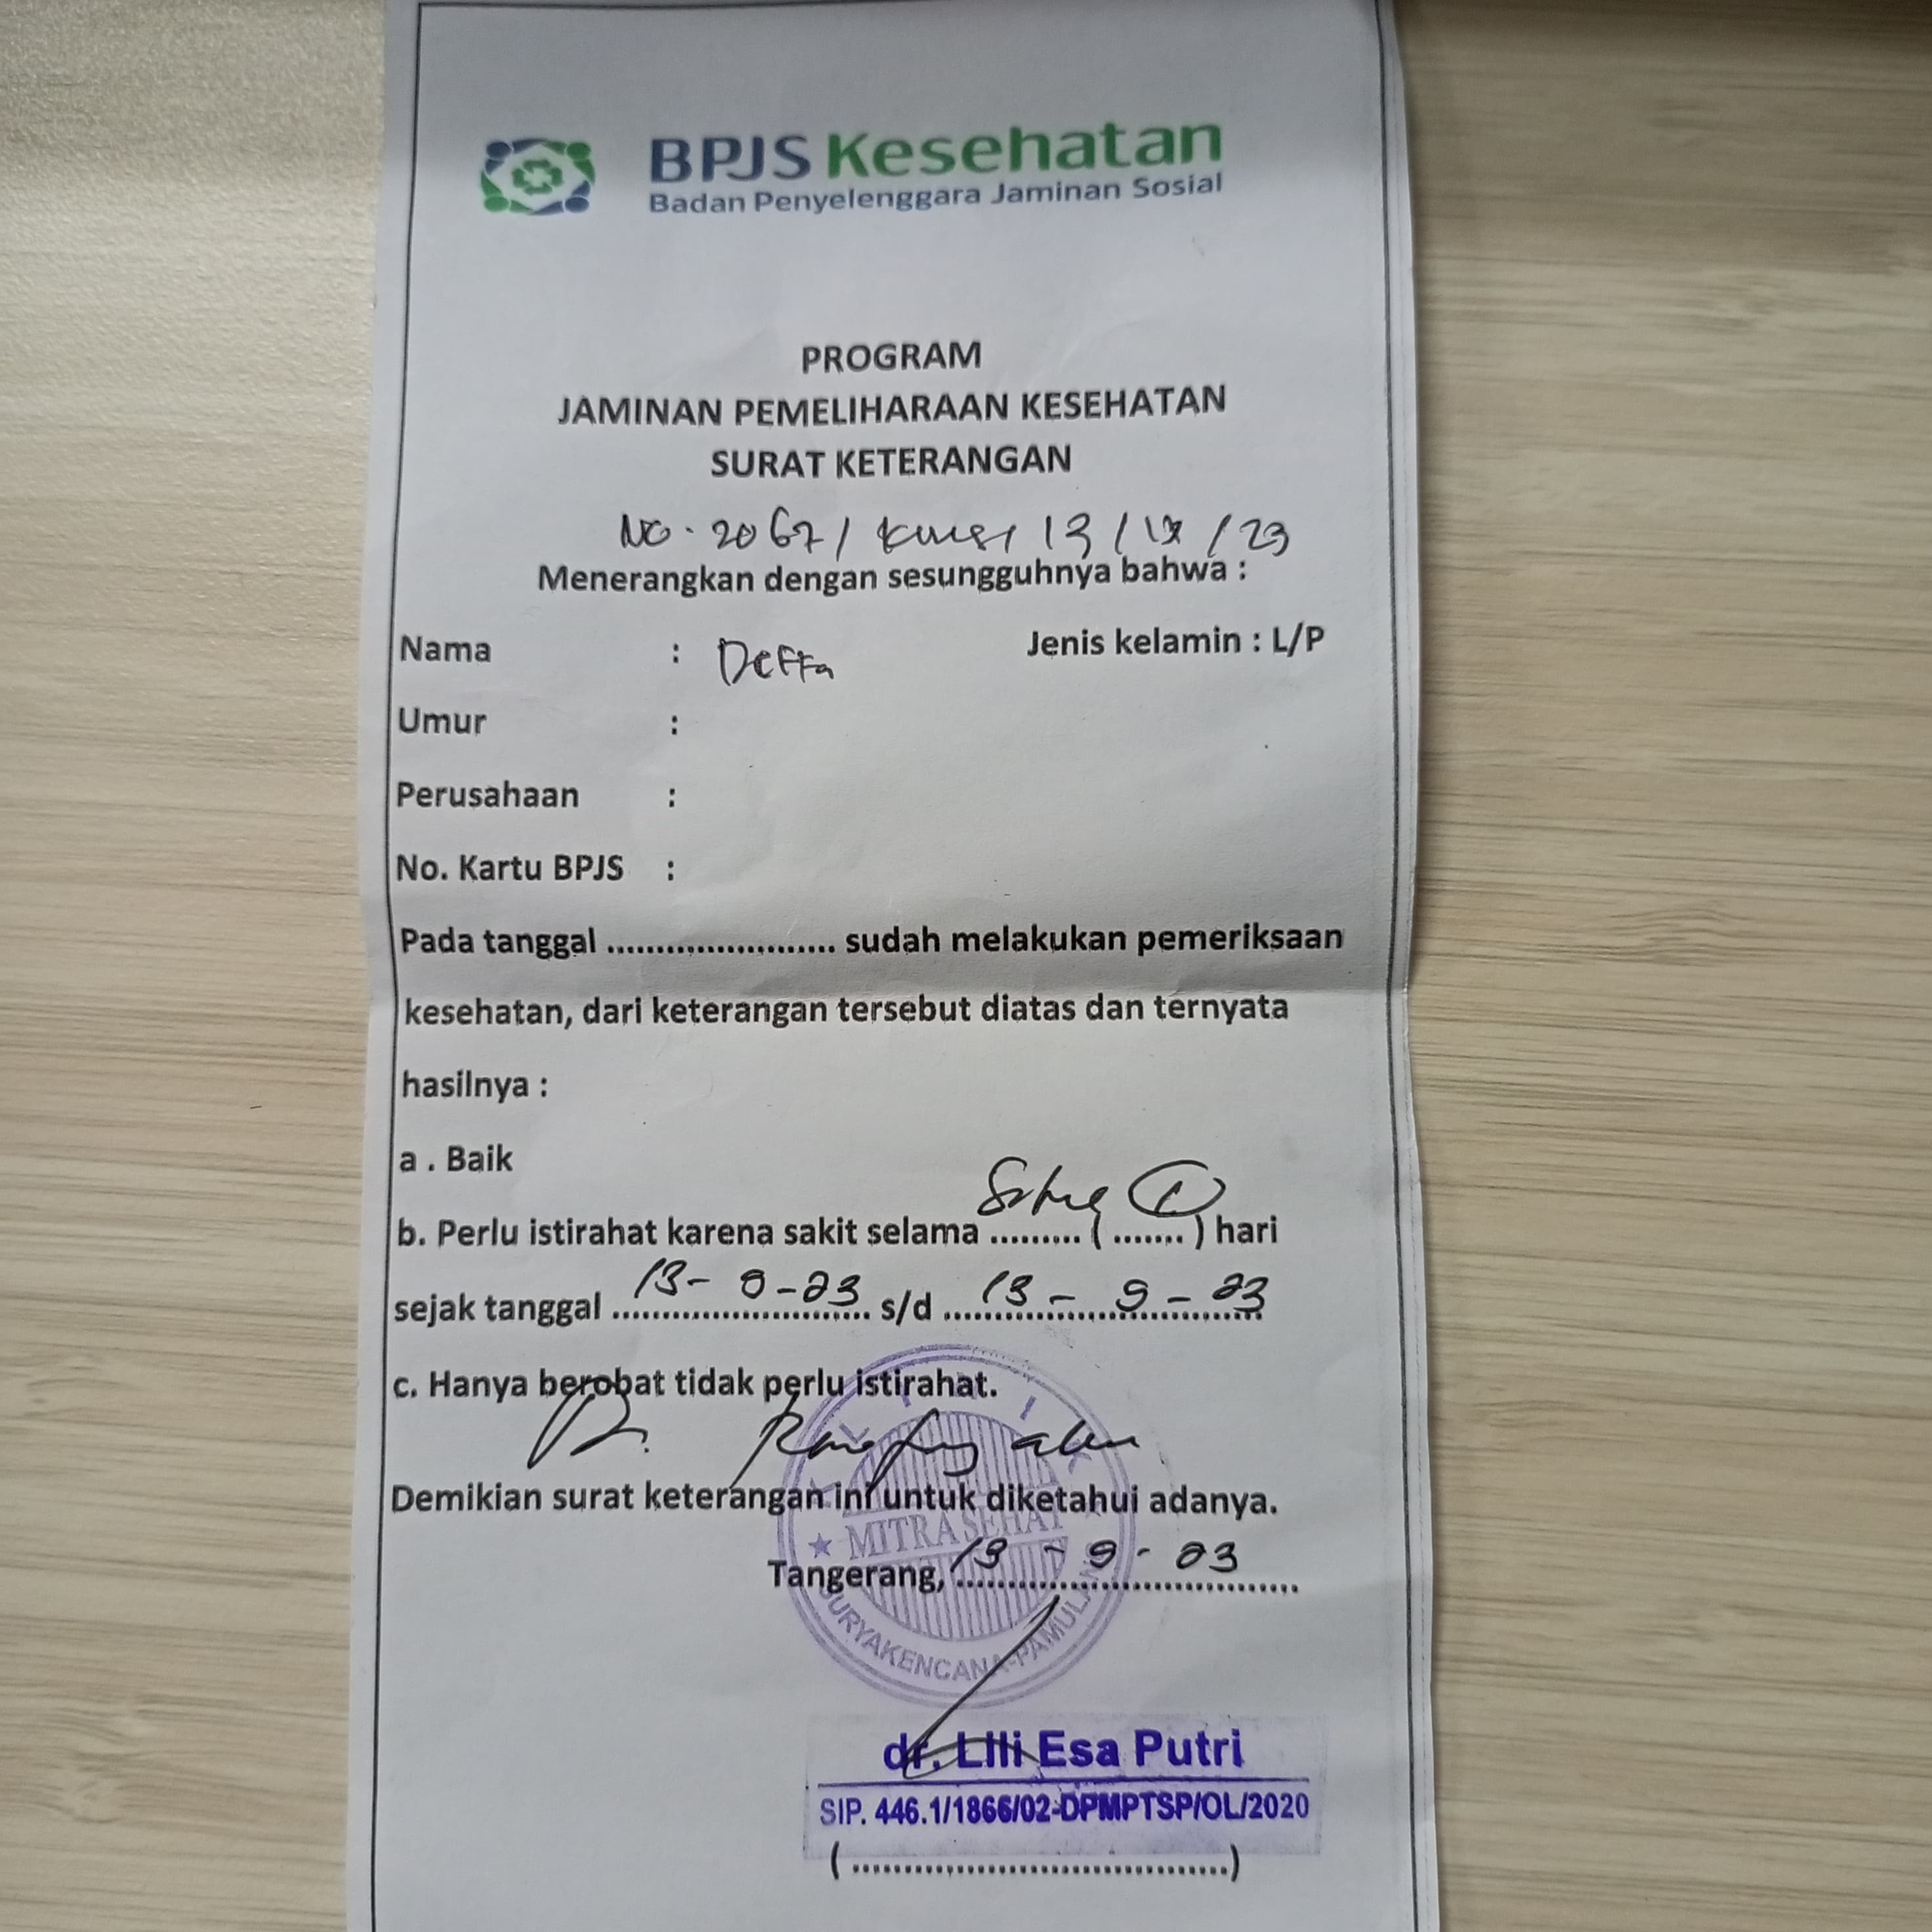 BPJS Kesehatan
Badan Penyelenggara Jaminan Sosial
PROGRAM
JAMINAN PEMELIHARAAN KESEHATAN
SURAT KETERANGAN
No. 2067 / KMS / 13 / IX / 23
Menerangkan dengan sesungguhnya bahwa :
Nama : Deffa Jenis kelamin : L/P
Umur :
Perusahaan :
No. Kartu BPJS :
Pada tanggal ....................... sudah melakukan pemeriksaan
kesehatan, dari keterangan tersebut diatas dan ternyata
hasilnya :
a . Baik
b. Perlu istirahat karena sakit selama ......... ( 1 ) hari
sejak tanggal 13 - 9 - 23 s/d 13 - 9 - 23
c. Hanya berobat tidak perlu istirahat.
Demikian surat keterangan ini untuk diketahui adanya.
MITRA SEHAT
Tangerang, 13 - 9 - 23
SURYAKENCANA-PAMULANG
dr. Lili Esa Putri
SIP. 446.1/1866/02-DPMPTSP/OL/2020
(.....................................)